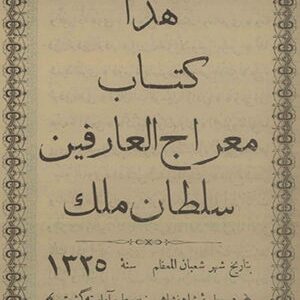 هذا
كتاب
معراج العارفين
سلطان ملك
بتاريخ شهر شعبان المعظم سنة ١٣٣٥